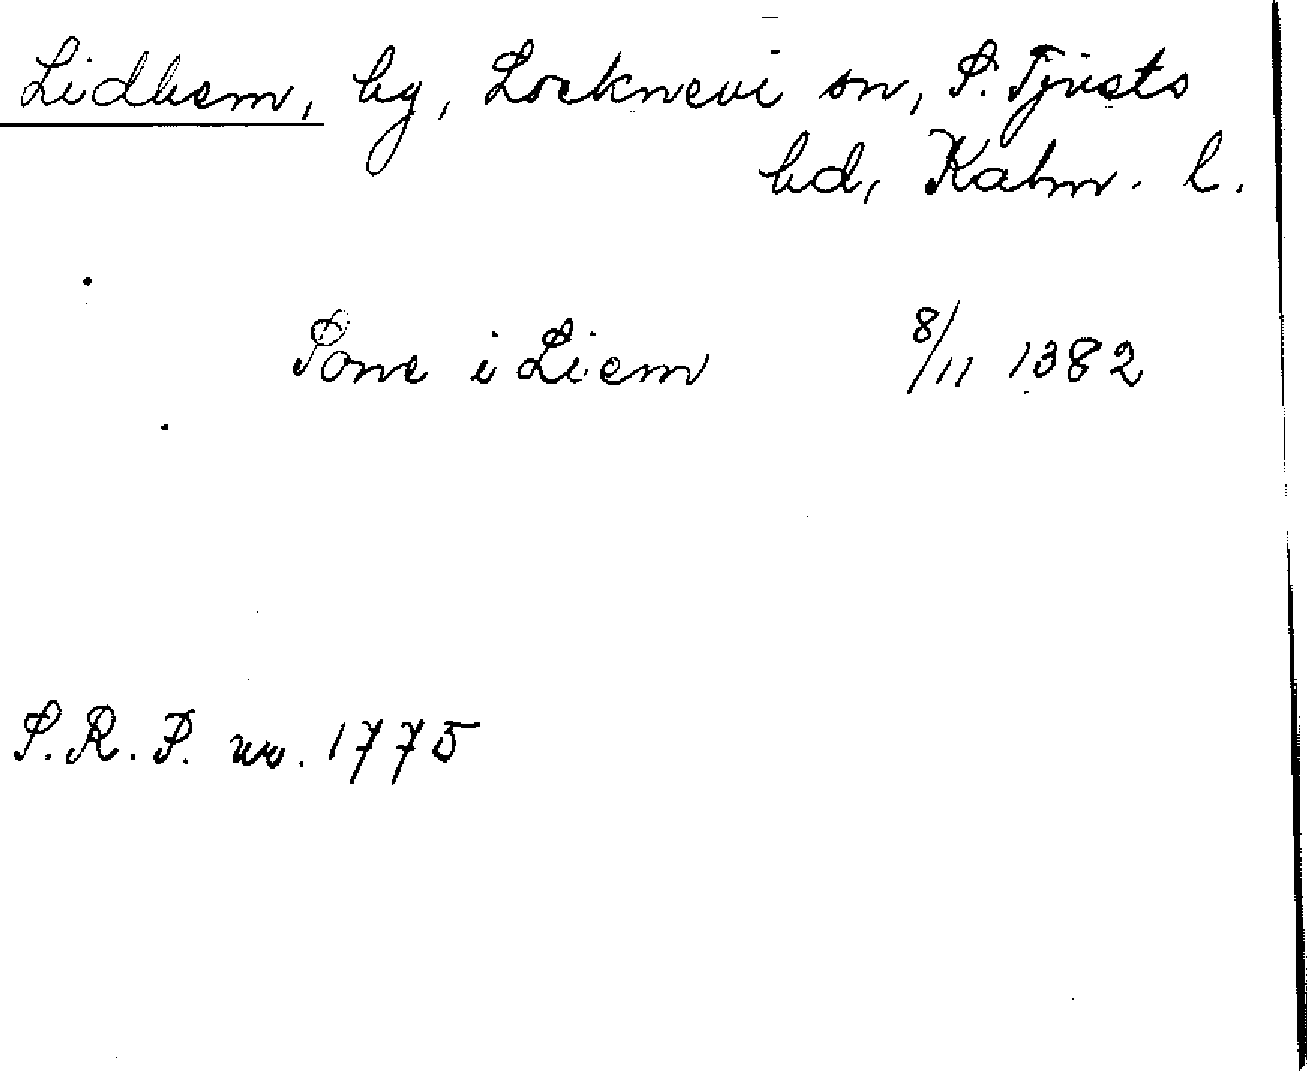 Lidhem, by, Locknevi sn, S. Tjusts
hd, Kalm. l.
Sone i Liem 8/11 1382
S.R.P. nr. 1775